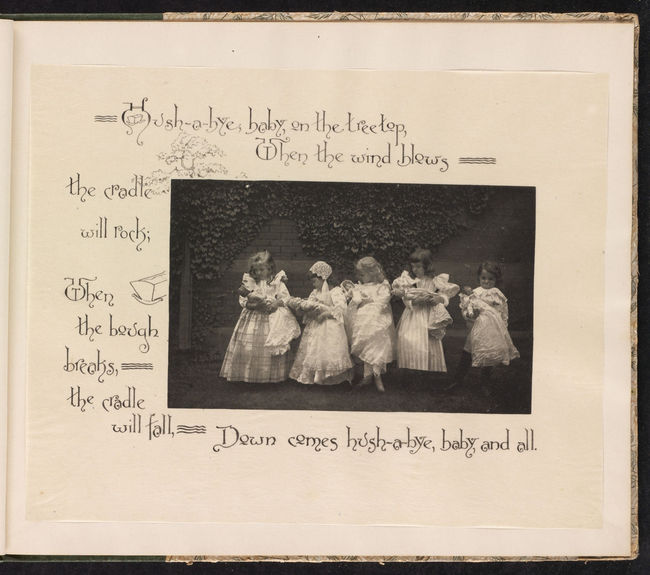 Hush-a-bye, baby, on the tree top,
When the wind blows
the cradle
will rock;
When
the bough
breaks,
the cradle
will fall,
Down comes hush-a-bye, baby, and all.